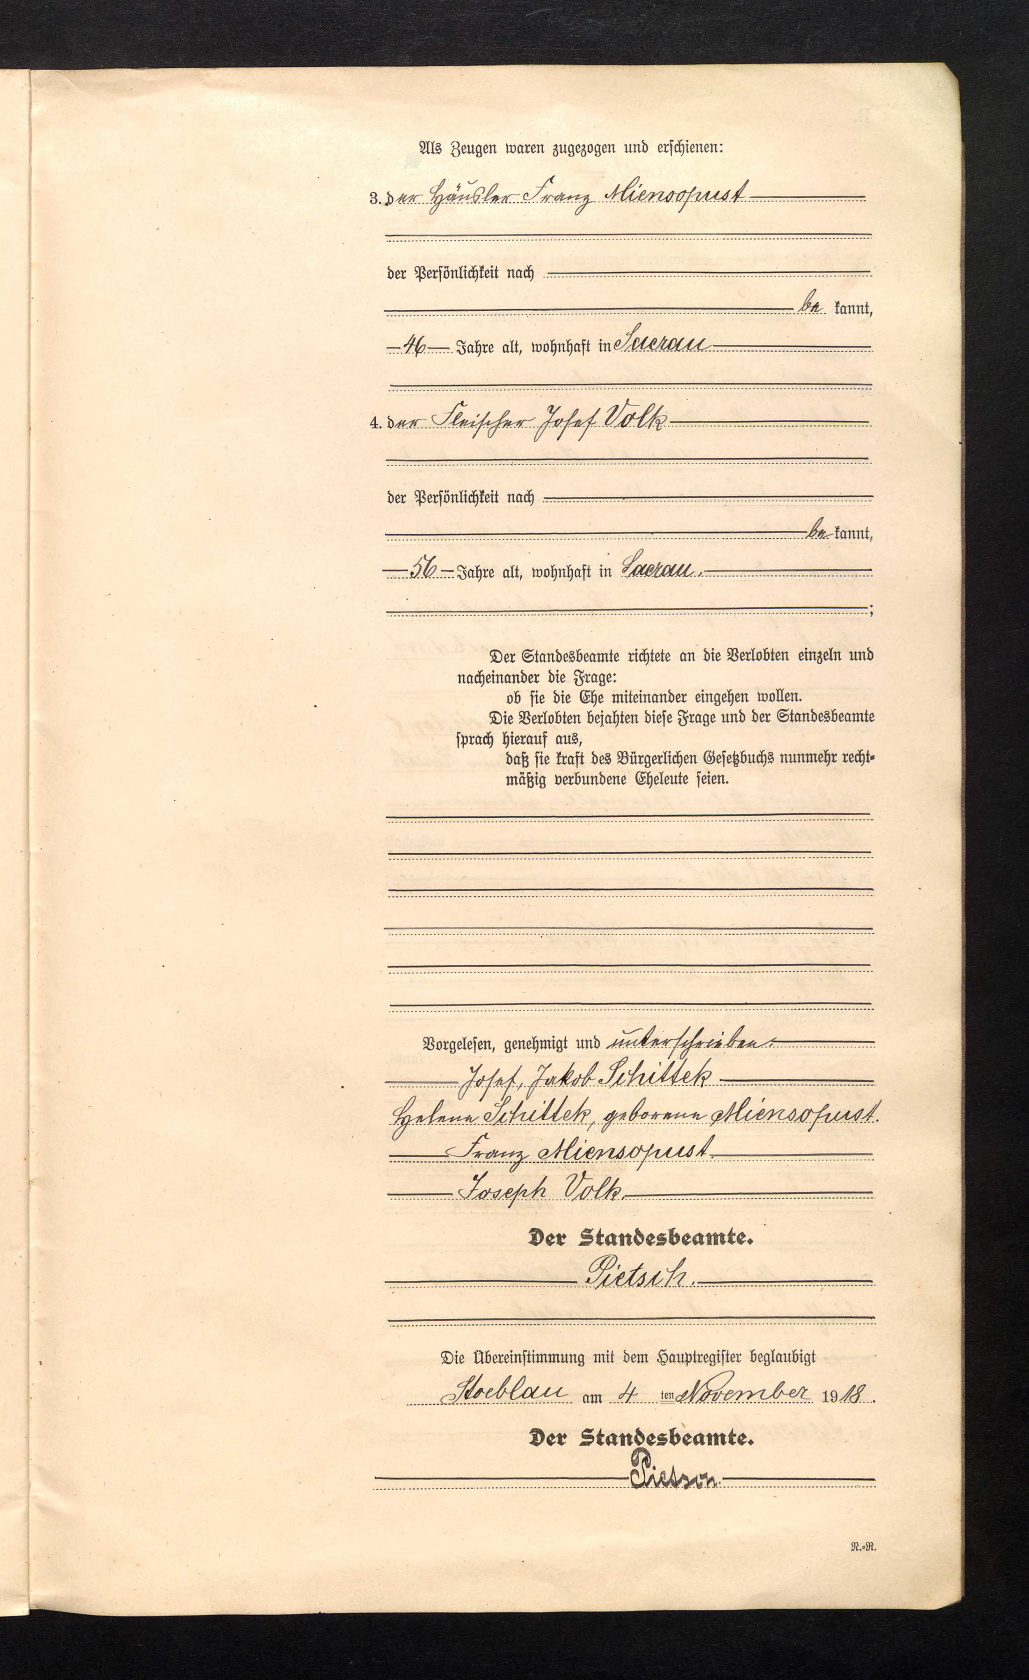 Als Zeugen waren zugezogen und erschienen:
3. der Häusler Franz Miensopust
der Persönlichkeit nach
be kannt,
46 Jahre alt, wohnhaft in Sacrau
4. der Fleischer Josef Volk
der Persönlichkeit nach
be kannt,
56 Jahre alt, wohnhaft in Sacrau.
;
Der Standesbeamte richtete an die Verlobten einzeln und
nacheinander die Frage:
ob sie die Ehe miteinander eingehen wollen.
Die Verlobten bejahten diese Frage und der Standesbeamte
sprach hierauf aus,
daß sie kraft des Bürgerlichen Gesetzbuchs nunmehr recht-
mäßig verbundene Eheleute seien.
Vorgelesen, genehmigt und unterschrieben:
Josef, Jakob Schittek
Helene Schittek, geborene Miensopust.
Franz Miensopust
Joseph Volk
Der Standesbeamte.
Pietsch.
Die Übereinstimmung mit dem Hauptregister beglaubigt
Stoeblau am 4 ten November 1918.
Der Standesbeamte.
R.-R.